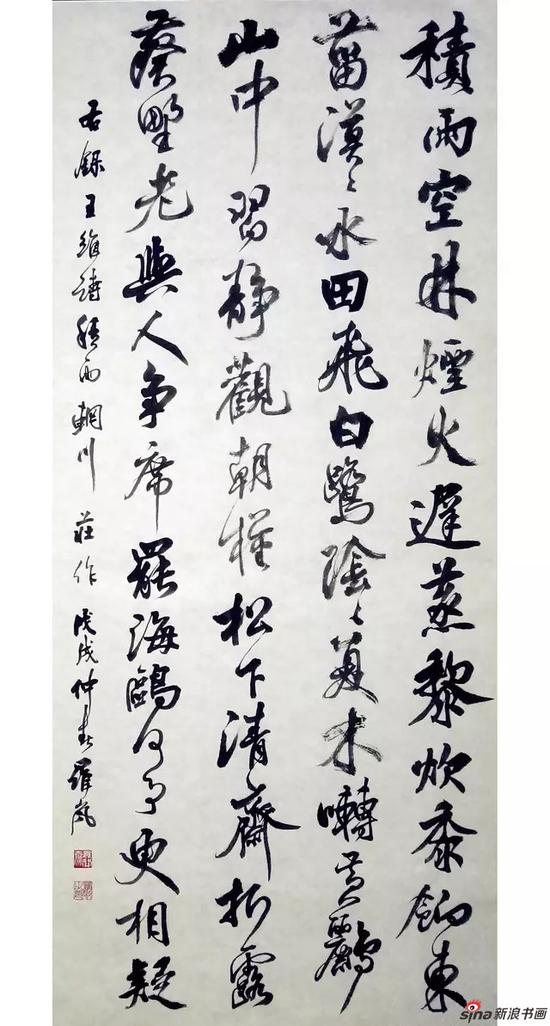 積雨空林煙火遲蒸黎炊黍餉東
菑漠々水田飛白鷺陰々夏木囀黃鸝
山中習靜觀朝槿松下清齋折露
葵野老與人争席罷海鷗何事更相疑
右錄王維詩積雨輞川莊作 戊戌仲春羅嵐
sina新浪书画